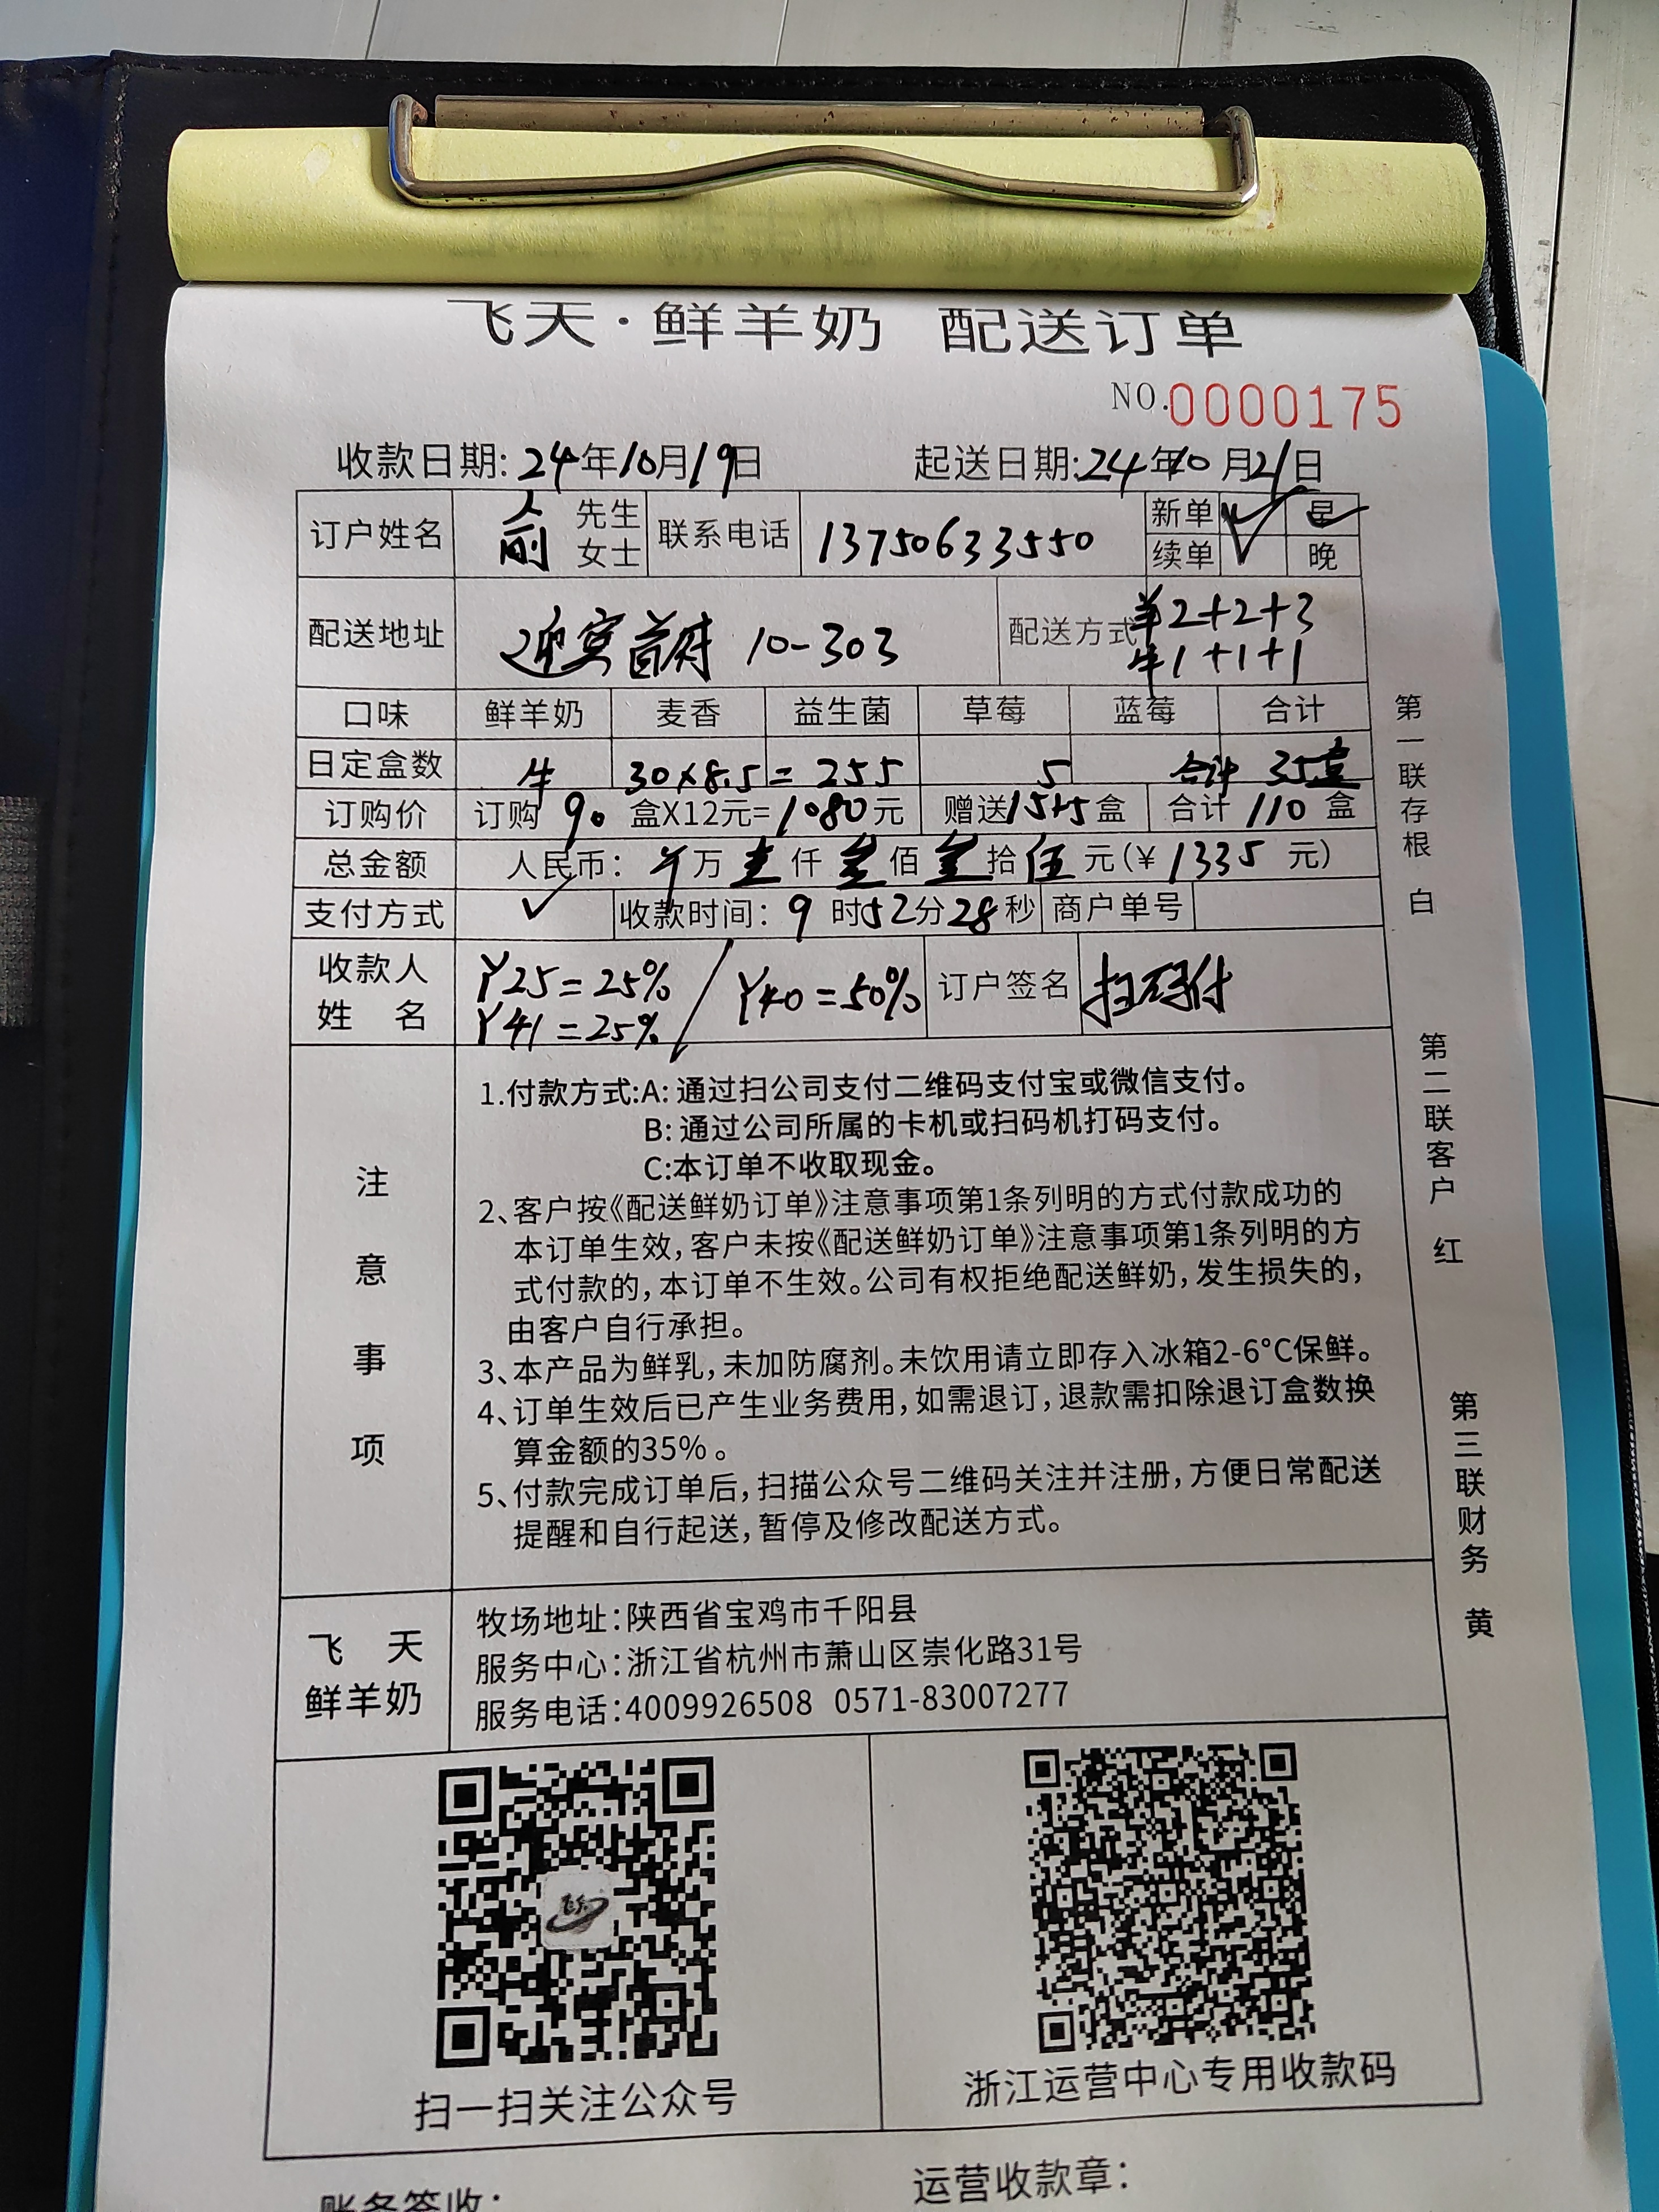 飞天·鲜羊奶 配送订单
NO.0000175
收款日期:24年10月19日 起送日期:24年10月21日
订户姓名 俞 先生 女士 联系电话 13750633550 新单 ✓ 早 续单 晚
配送地址 迎宾首府 10-303 配送方式 羊2+2+3
牛1+1+1
口味 鲜羊奶 麦香 益生菌 草莓 蓝莓 合计
日定盒数 牛 30×8.5=255 5 合计 35盒
订购价 订购 90 盒X12元=1080元 赠送15+5盒 合计 110 盒
总金额 人民币: 万 壹 仟 叁 佰 叁 拾 伍 元(¥ 1335 元)
支付方式 ✓ 收款时间: 9 时52分28秒 商户单号
收款人 姓 名 Y25=25% / Y40=50% 订户签名 扫码付
Y41=25%
注意事项
1.付款方式:A:通过扫公司支付二维码支付宝或微信支付。
B:通过公司所属的卡机或扫码机打码支付。
C:本订单不收取现金。
2、客户按《配送鲜奶订单》注意事项第1条列明的方式付款成功的
本订单生效,客户未按《配送鲜奶订单》注意事项第1条列明的方
式付款的,本订单不生效。公司有权拒绝配送鲜奶,发生损失的,
由客户自行承担。
3、本产品为鲜乳,未加防腐剂。未饮用请立即存入冰箱2-6°C保鲜。
4、订单生效后已产生业务费用,如需退订,退款需扣除退订盒数换
算金额的35%。
5、付款完成订单后,扫描公众号二维码关注并注册,方便日常配送
提醒和自行起送,暂停及修改配送方式。
飞天 鲜羊奶
牧场地址:陕西省宝鸡市千阳县
服务中心:浙江省杭州市萧山区崇化路31号
服务电话:4009926508 0571-83007277
第一联存根 白
第二联客户 红
第三联财务 黄
扫一扫关注公众号
浙江运营中心专用收款码
账务签收: 运营收款章: